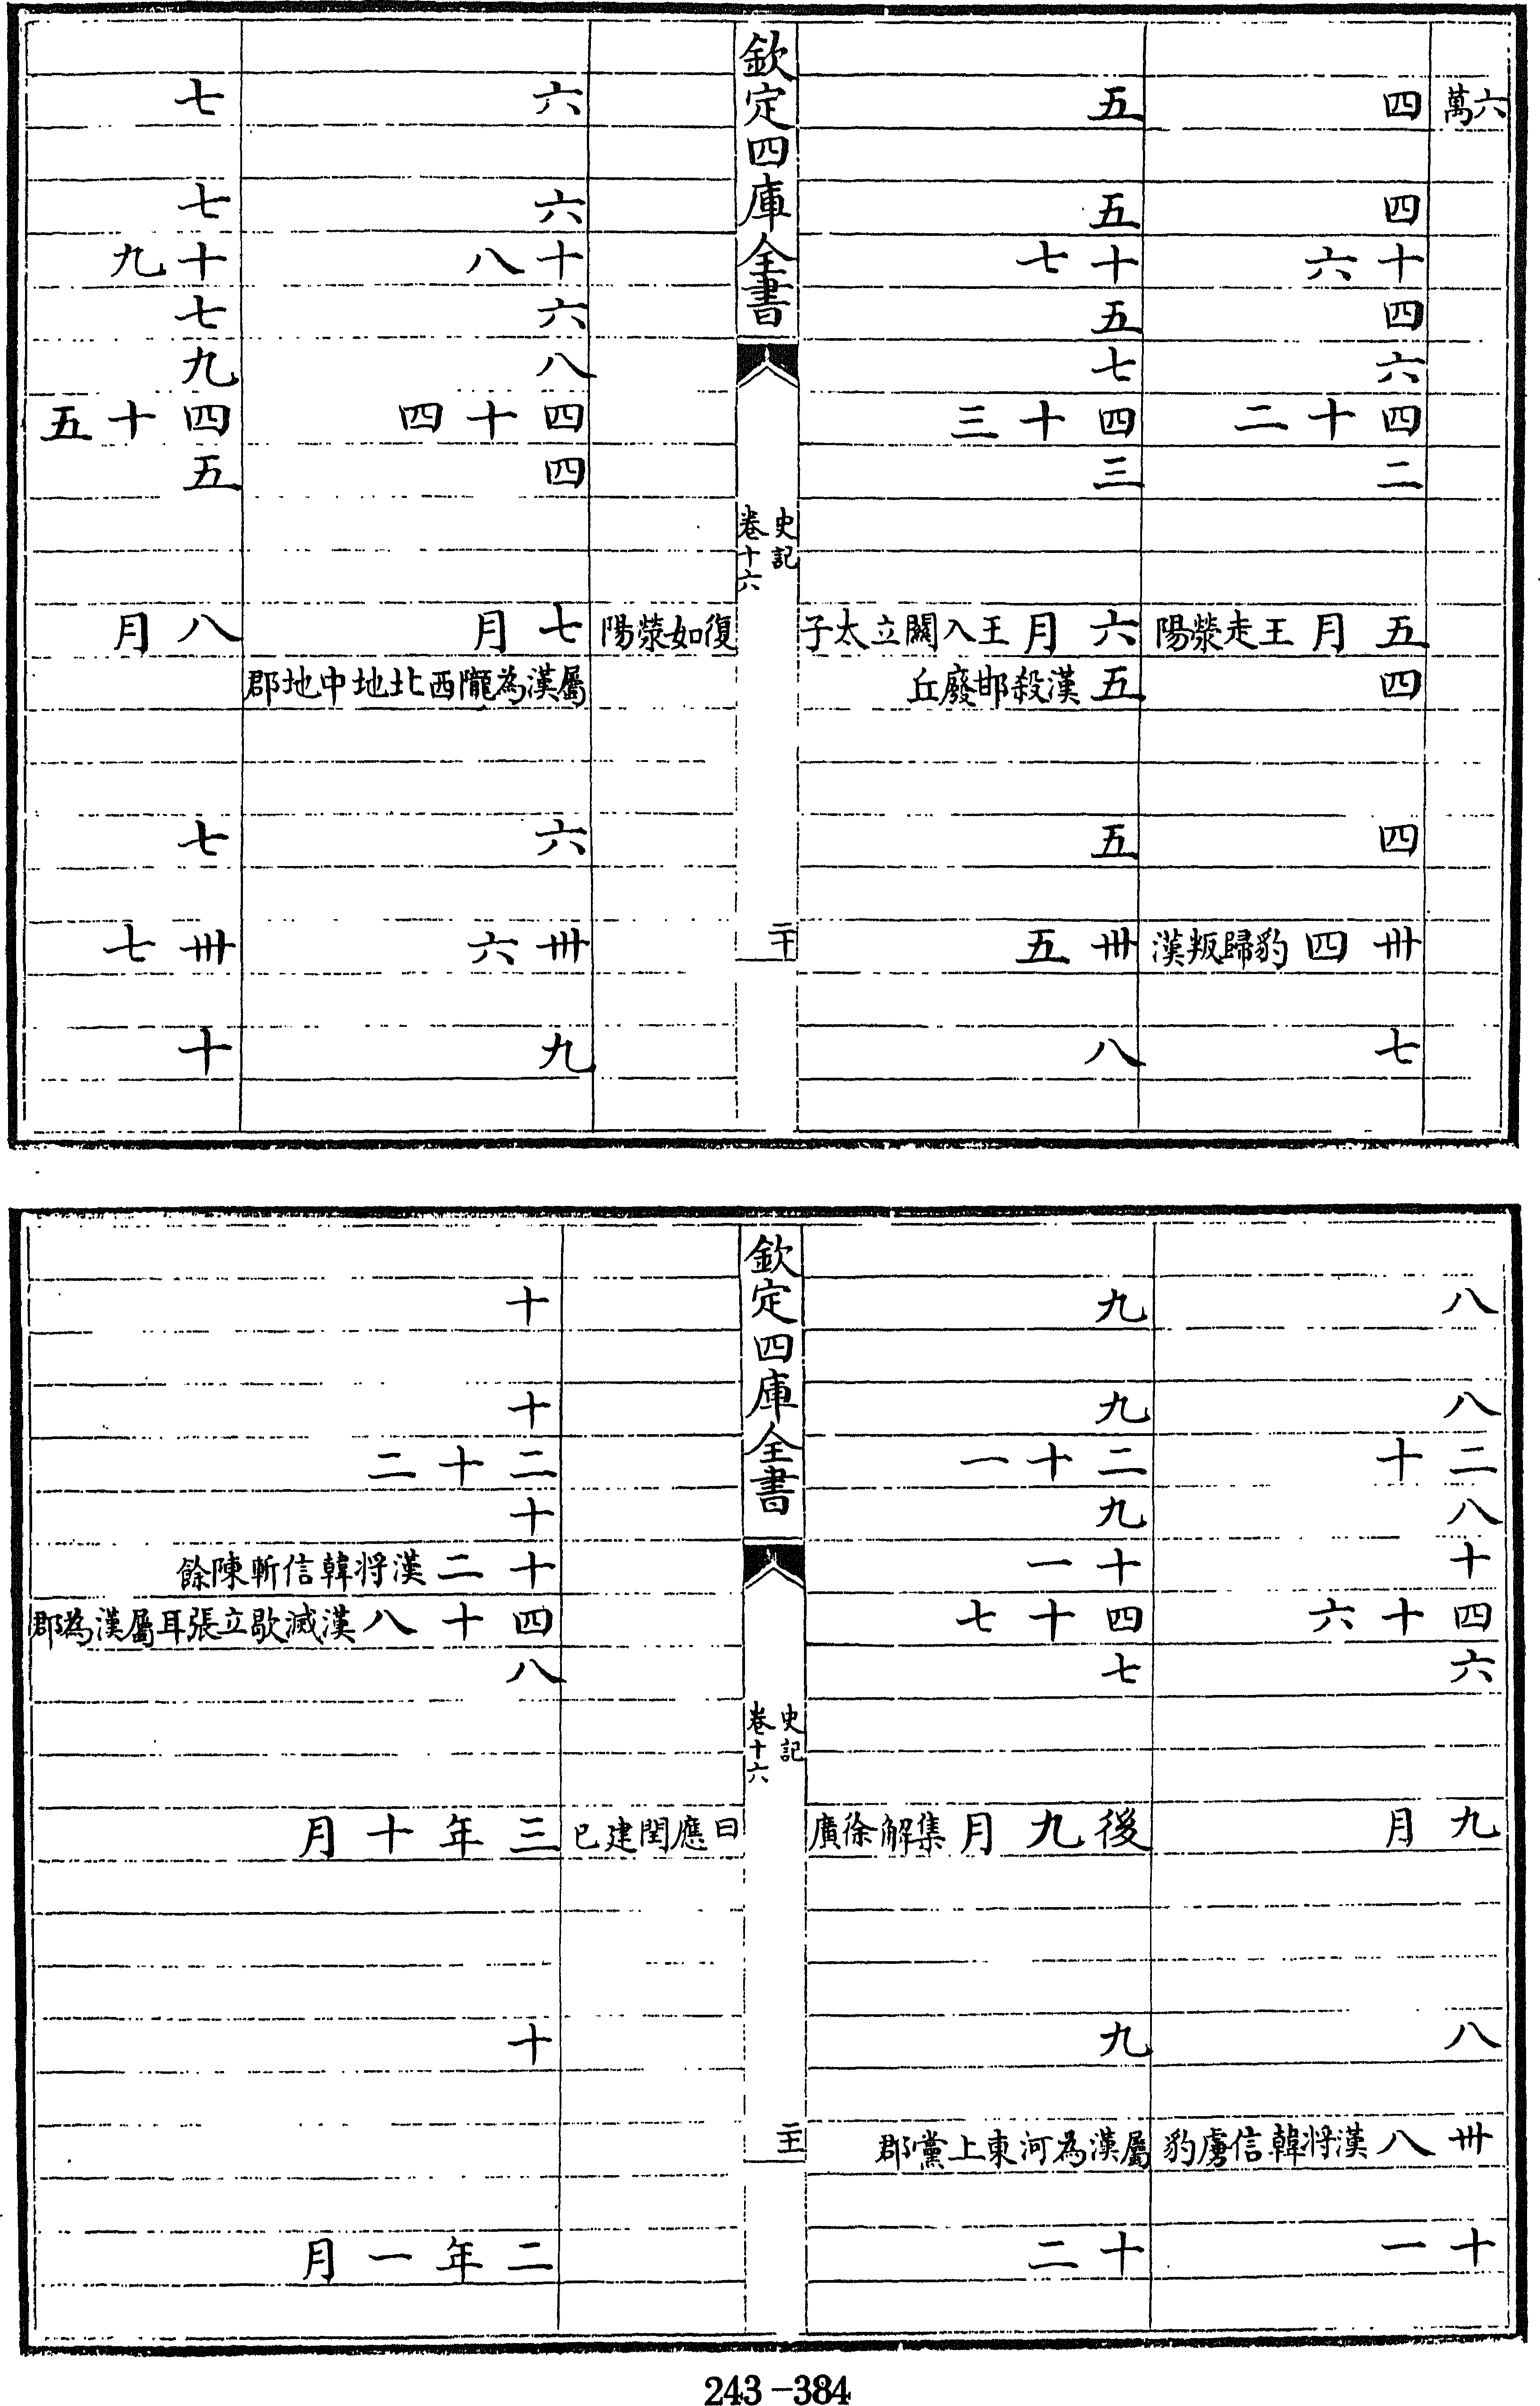 六萬
四
四
十六
四
六
四十二
二
五月王走滎陽
四
四
卅四豹歸叛漢
七
五
五
十七
五
七
四十三
三
六月王入關立太子
五漢殺邯廢丘
五
卅五
八
欽定四庫全書
史記
卷十六
二十
復如滎陽
六
六
十八
六
八
四十四
四
七月
屬漢為隴西北地中地郡
六
卅六
九
七
七
十九
七
九
四十五
五
八月
七
卅七
十
八
八
二十
八
十
四十六
六
九月
八
卅八漢將韓信虜豹
十一
九
九
二十一
九
十一
四十七
七
後九月集解徐廣
九
屬漢為河東上黨郡
十二
欽定四庫全書
史記
卷十六
二十一
曰應閏建巳
十
十
二十二
十
十二漢將韓信斬陳餘
四十八漢滅歇立張耳屬漢為郡
八
三年十月
十
二年一月
243-384